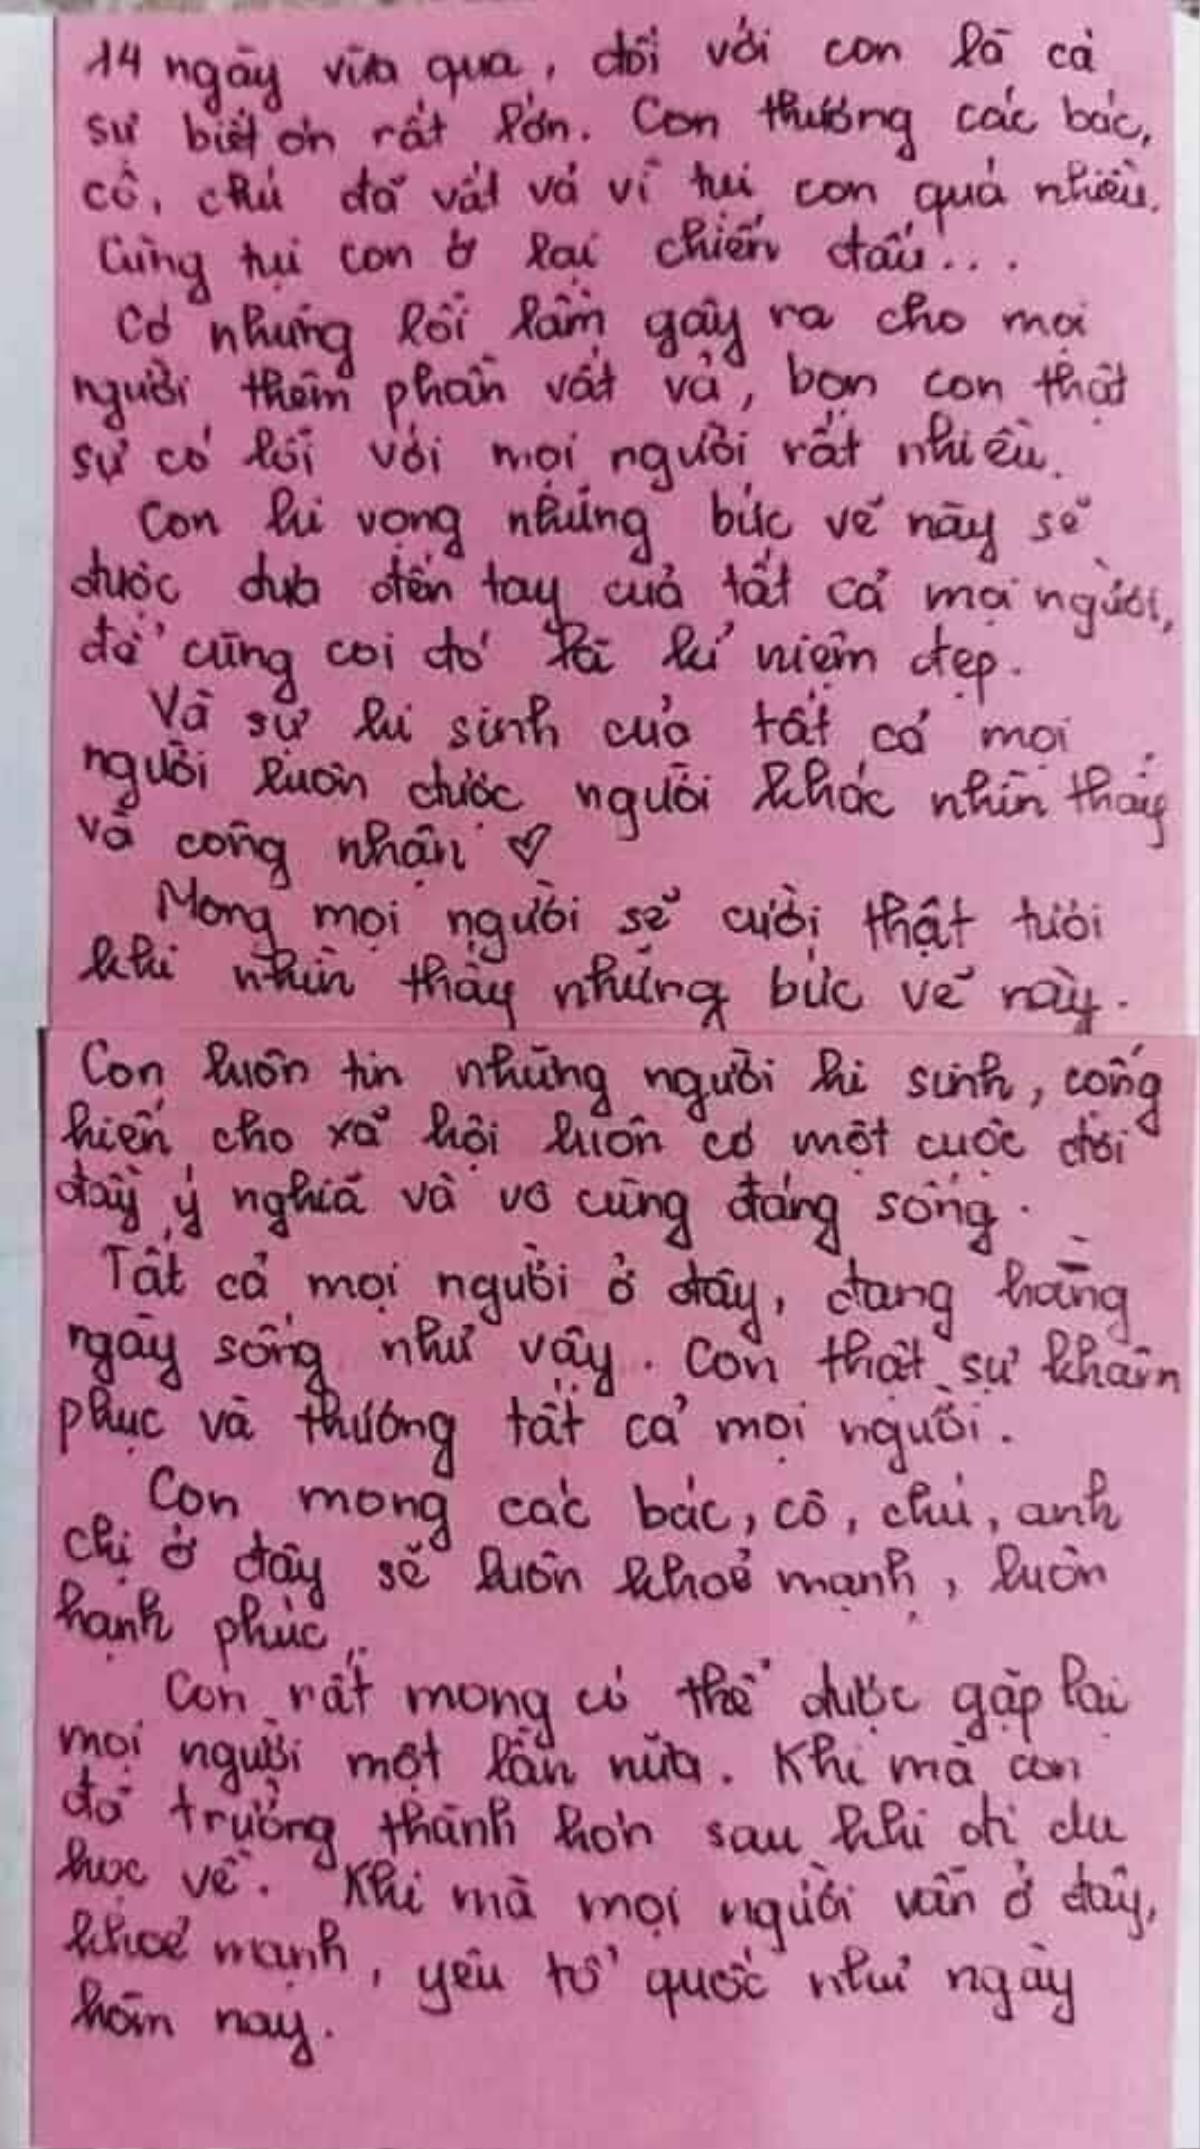 14 ngày vừa qua, đối với con là cả
sự biết ơn rất lớn. Con thương các bác,
cô, chú đã vất vả vì tụi con quá nhiều.
Cùng tụi con ở lại chiến đấu...
Có những lỗi lầm gây ra cho mọi
người thêm phần vất vả, bọn con thật
sự có lỗi với mọi người rất nhiều.
Con hi vọng những bức vẽ này sẽ
được đưa đến tay của tất cả mọi người,
để cũng coi đó là kỉ niệm đẹp.
Và sự hi sinh của tất cả mọi
người luôn được người khác nhìn thấy
và công nhận ♡
Mong mọi người sẽ cười thật tươi
khi nhìn thấy những bức vẽ này.
Con luôn tin những người hi sinh, cống
hiến cho xã hội luôn có một cuộc đời
đầy ý nghĩa và vô cùng đáng sống.
Tất cả mọi người ở đây, đang hằng
ngày sống như vậy. Con thật sự khâm
phục và thương tất cả mọi người.
Con mong các bác, cô, chú, anh
chị ở đây sẽ luôn khoẻ mạnh, luôn
hạnh phúc..
Con rất mong có thể được gặp lại
mọi người một lần nữa. Khi mà con
đã trưởng thành hơn sau khi đi du
học về. Khi mà mọi người vẫn ở đây,
khoẻ mạnh, yêu tổ quốc như ngày
hôm nay.